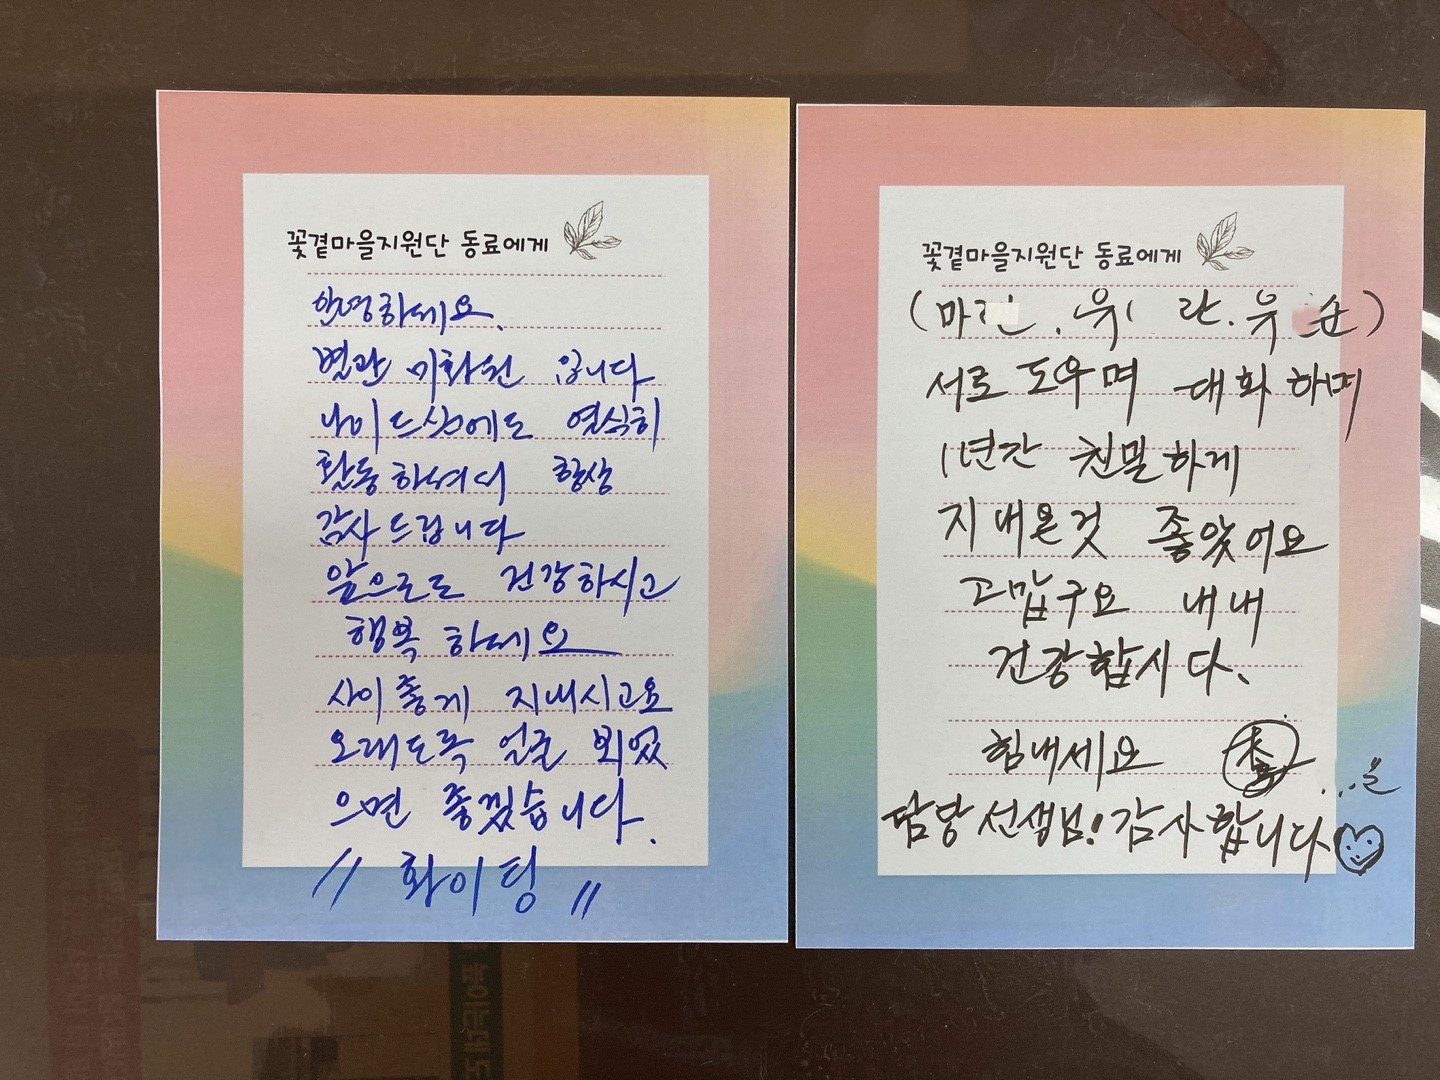 꽃곁마을지원단 동료에게
안녕하세요.
별관 미화원 입니다
나이드심에도 열심히
활동하셔서 항상
감사드립니다
앞으로도 건강하시고
행복 하세요
사이좋게 지내시고요
오래도록 얼굴 뵈었
으면 좋겠습니다.
// 화이팅 //
꽃곁마을지원단 동료에게
서로 도우며 대화하며
1년간 친밀하게
지내온것 좋았어요
고맙구요 내내
건강합시다.
힘내세요
담당선생님! 감사합니다